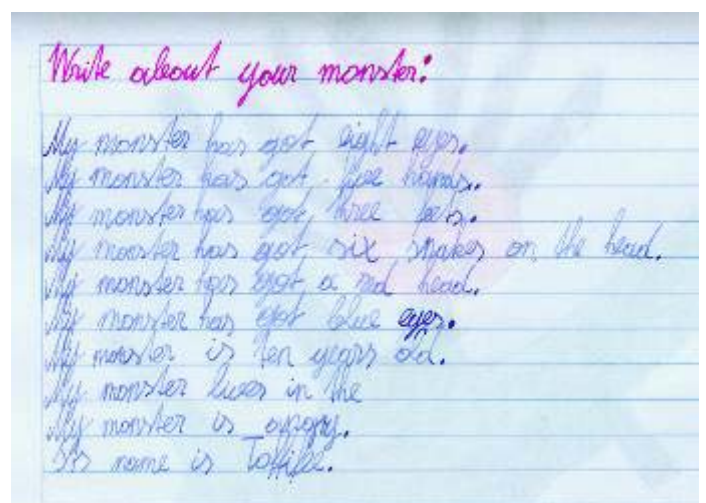 Write about your monster:
My monster has got eight eyes.
My monster has got five hands.
My monster has got three legs.
My monster has got six snakes on the head.
My monster has got a red head.
My monster has got blue eyes.
My monster is ten years old.
My monster lives in the
My monster is angry.
name is Toffifee.